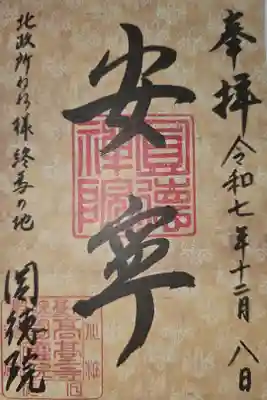 奉拝 令和七年十二月八日
安寧
圓徳禅院
北政所ねね様終焉の地
圓徳院